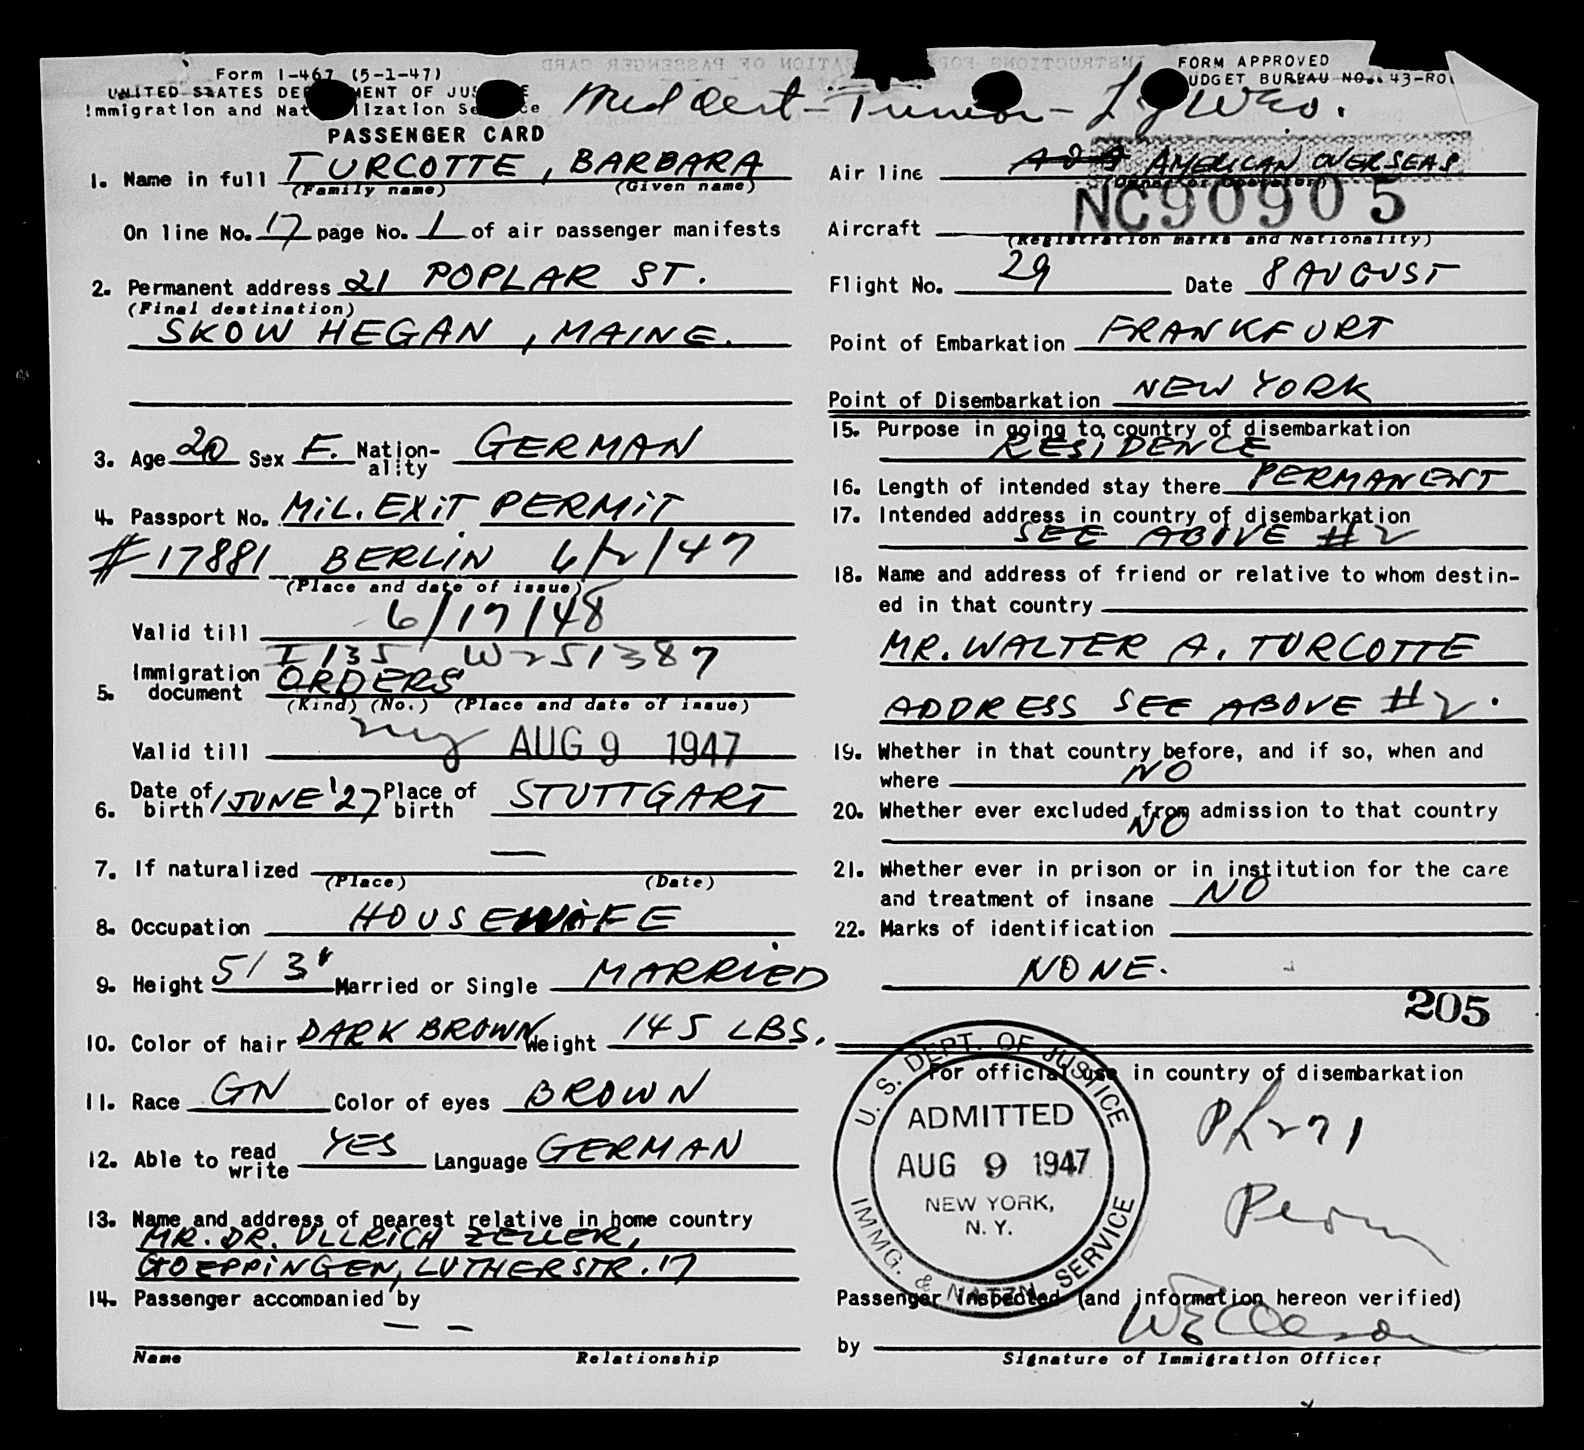 Form I-467 (5-1-47)
UNITED STATES DEPARTMENT OF JUSTICE
Immigration and Naturalization Service
PASSENGER CARD
FORM APPROVED
BUDGET BUREAU NO. 43-RO
Med Cert - Tumor - L
1. Name in full TURCOTTE, BARBARA
(Family name) (Given name)
On line No. 17 page No. 1 of air passenger manifests
2. Permanent address 21 POPLAR ST.
(Final destination)
SKOWHEGAN, MAINE.
3. Age 20 Sex F. Nationality GERMAN
4. Passport No. MIL. EXIT PERMIT
#17881 BERLIN 6/2/47
(Place and date of issue)
Valid till 6/17/48
I 135 W251387
5. Immigration document ORDERS
(Kind) (No.) (Place and date of issue)
Valid till NY AUG 9 1947
6. Date of birth 1 JUNE '27 Place of birth STUTTGART
7. If naturalized —
(Place) (Date)
8. Occupation HOUSEWIFE
9. Height 5/3" Married or Single MARRIED
10. Color of hair DARK BROWN Weight 145 LBS.
11. Race GN Color of eyes BROWN
12. Able to read write YES Language GERMAN
13. Name and address of nearest relative in home country
MR. DR. ULLRICH ZELLER,
GOEPPINGEN, LUTHERSTR. 17
14. Passenger accompanied by
— —
Name Relationship
Air line AOA AMERICAN OVERSEAS
(Owner or Operator)
Aircraft NC90905
(Registration marks and Nationality)
Flight No. 29 Date 8 AUGUST
Point of Embarkation FRANKFURT
Point of Disembarkation NEW YORK
15. Purpose in going to country of disembarkation
RESIDENCE
16. Length of intended stay there PERMANENT
17. Intended address in country of disembarkation
SEE ABOVE #2
18. Name and address of friend or relative to whom destin-
ed in that country
MR. WALTER A. TURCOTTE
ADDRESS SEE ABOVE #2.
19. Whether in that country before, and if so, when and
where NO
20. Whether ever excluded from admission to that country
NO
21. Whether ever in prison or in institution for the care
and treatment of insane NO
22. Marks of identification
NONE.
205
For official use in country of disembarkation
U. S. DEPT. OF JUSTICE
ADMITTED
AUG 9 1947
NEW YORK,
N. Y.
IMMG. & NATZN. SERVICE
2271
Perm
Passenger inspected (and information hereon verified)
by
Signature of Immigration Officer